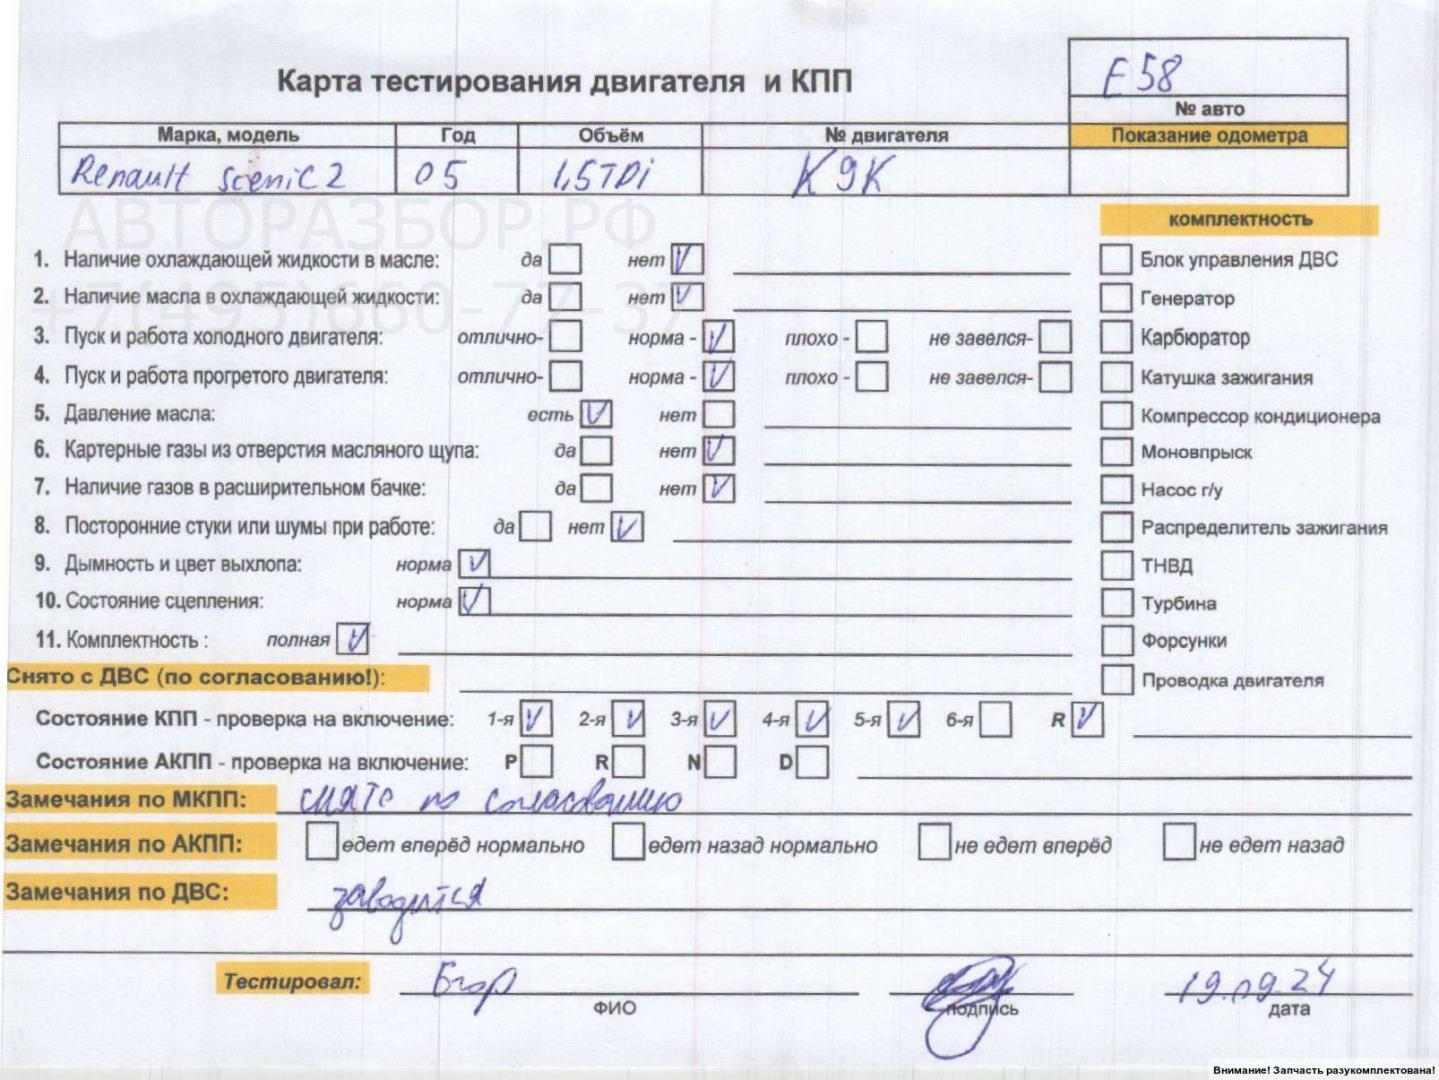 E 58
Карта тестирования двигателя и КПП
№ авто
Марка, модель Год Объём № двигателя Показание одометра
Renault Scenic 2 05 1,5 TDi K9K
АВТОРАЗБОР.РФ
+7(495)660-77-37
комплектность
1. Наличие охлаждающей жидкости в масле: да нет V Блок управления ДВС
2. Наличие масла в охлаждающей жидкости: да нет V Генератор
3. Пуск и работа холодного двигателя: отлично- норма - V плохо - не завелся- Карбюратор
4. Пуск и работа прогретого двигателя: отлично- норма - V плохо - не завелся- Катушка зажигания
5. Давление масла: есть V нет Компрессор кондиционера
6. Картерные газы из отверстия масляного щупа: да нет V Моновпрыск
7. Наличие газов в расширительном бачке: да нет V Насос г/у
8. Посторонние стуки или шумы при работе: да нет V Распределитель зажигания
9. Дымность и цвет выхлопа: норма V ТНВД
10. Состояние сцепления: норма V Турбина
11. Комплектность : полная V Форсунки
Снято с ДВС (по согласованию!): Проводка двигателя
Состояние КПП - проверка на включение: 1-я V 2-я V 3-я V 4-я V 5-я V 6-я R V
Состояние АКПП - проверка на включение: P R N D
Замечания по МКПП: снято по согласованию
Замечания по АКПП: едет вперёд нормально едет назад нормально не едет вперёд не едет назад
Замечания по ДВС: заводится
Тестировал: Егор 19.09.24
ФИО подпись дата
Внимание! Запчасть разукомплектована!